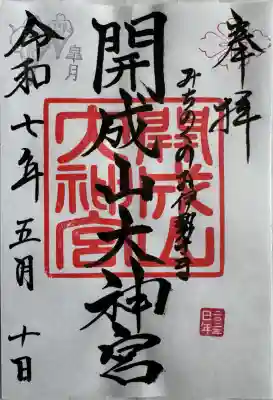 奉拝
みちのくのお伊勢さま
開成山大神宮
開成山大神宮
皐月
令和七年五月十日
二〇二五
巳年